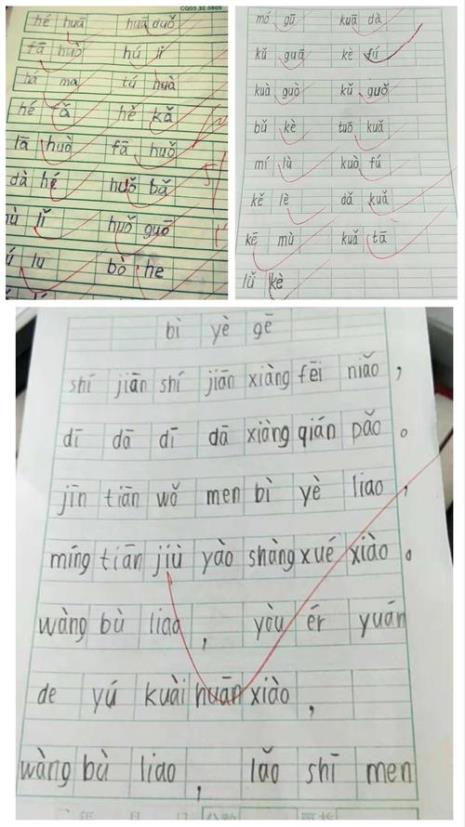 hé huā huā duǒ
fā huò hú lí
há ma tú huà
hé tǎ hě kǎ
lā huǒ fā huǒ
dà hé huǒ bǎ
lǐ huǒ guō
lu bò he
mó gū kuā dà
kǔ guā kè fú
kuà guò kǔ guǒ
bǔ kè tuō kuǎ
mí lù kuò fú
kě lè dǎ kuǎ
kē mù kuǎ tā
lǔ kè
bì yè gē
shí jiān shí jiān xiàng fēi niǎo ,
dī dā dī dā xiàng qián pǎo 。
jīn tiān wǒ men bì yè liao ,
míng tiān jiù yào shàng xué xiào 。
wàng bù liao , yòu ér yuán
de yú kuài huān xiào ,
wàng bù liao , lǎo shī men